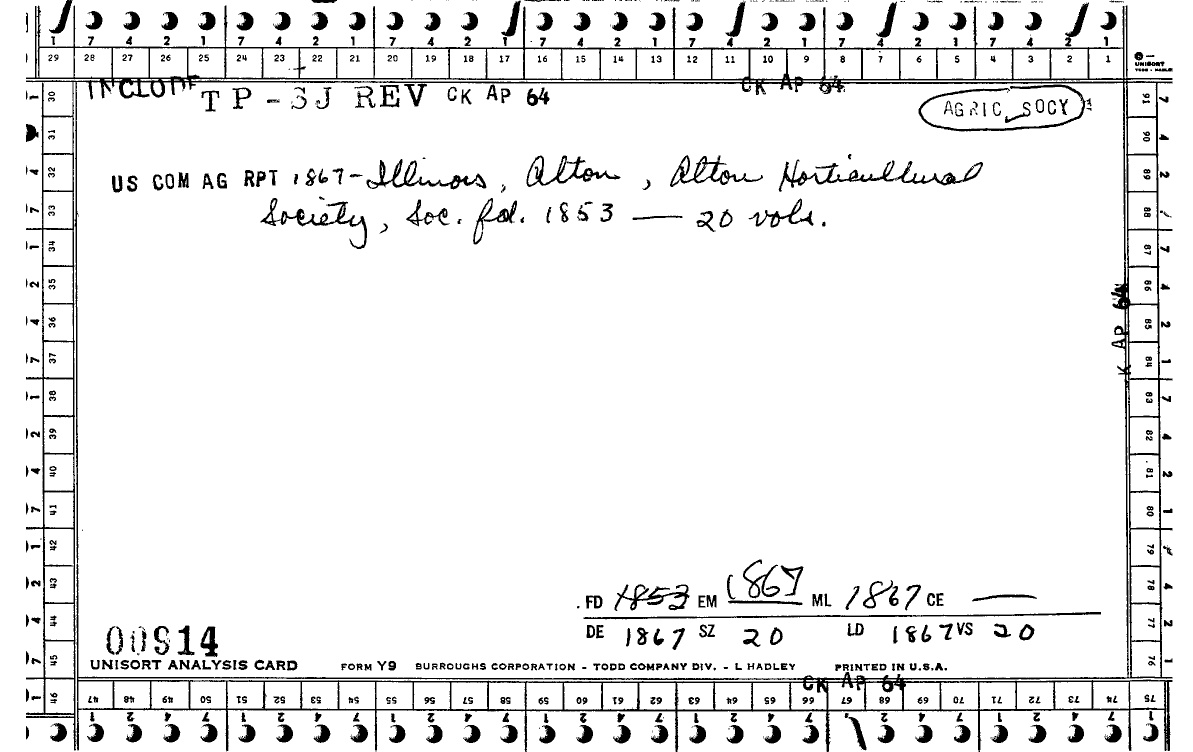 7 4 2 1 7 4 2 1 7 4 2 1 7 4 2 1 7 4 2 1 7 4 2 1 7 4 2 1
29 28 27 26 25 24 23 22 21 20 19 18 17 16 15 14 13 12 11 10 9 8 7 6 5 4 3 2 1
UNISORT
INCLUDE TP-SJ REV CK AP 64 CK AP 64
AGRIC SOCY
US COM AG RPT 1867-Illinois, Alton, Alton Horticultural
Society, Soc. fd. 1853 — 20 vols.
30 31 32 33 34 35 36 37 38 39 40 41 42 43 44 45 46
91 90 89 88 87 86 85 84 83 82 81 80 79 78 77 76 75
K AP 64
FD 1853 EM 1867 ML 1867 CE —
DE 1867 SZ 20 LD 1867 VS 20
00914
UNISORT ANALYSIS CARD FORM Y9 BURROUGHS CORPORATION - TODD COMPANY DIV. - L HADLEY PRINTED IN U.S.A.
CK AP 64
47 48 49 50 51 52 53 54 55 56 57 58 59 60 61 62 63 64 65 66 67 68 69 70 71 72 73 74 75